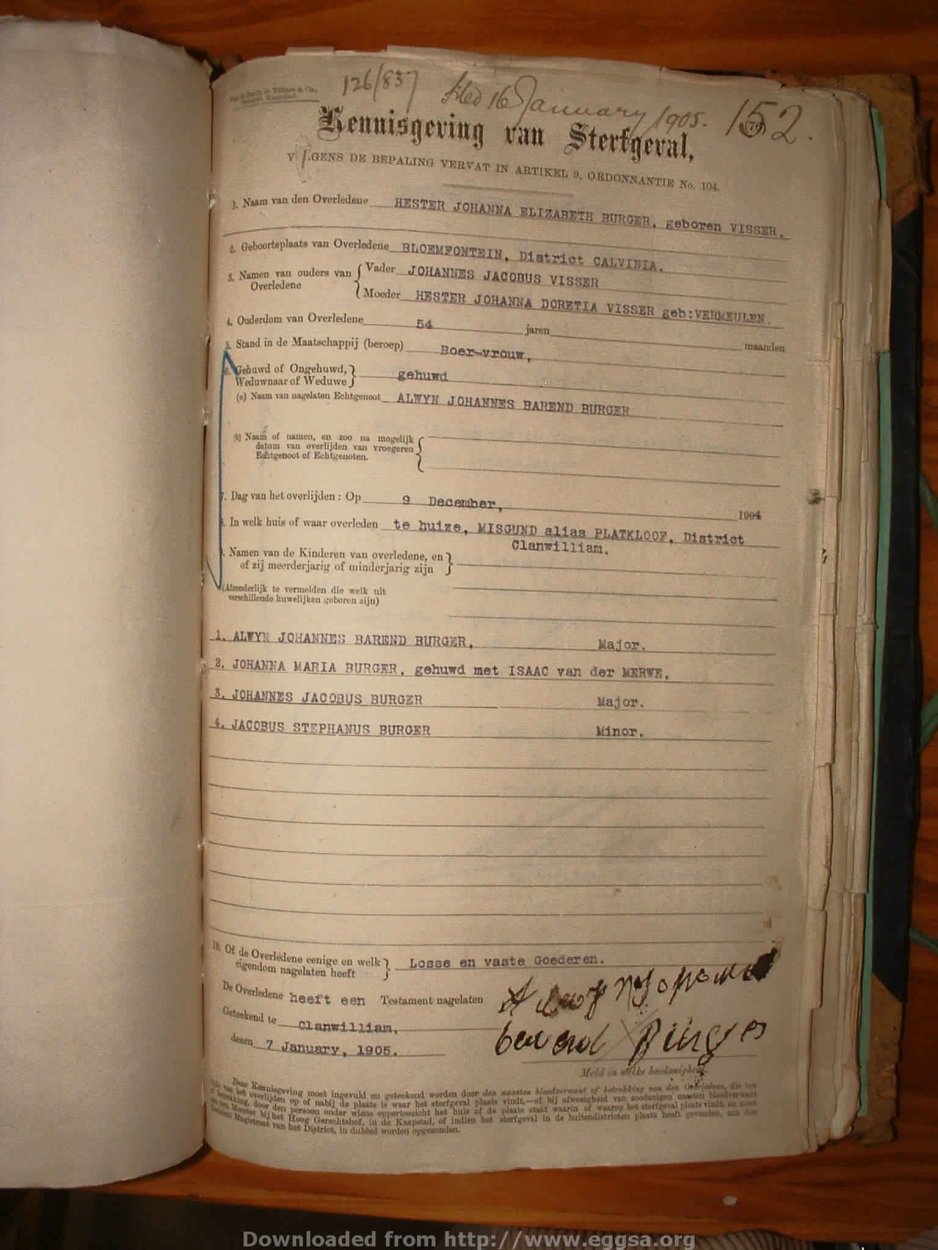 126/837
filed 16 January 1905.
152.
Kennisgeving van Sterfgeval,
VOLGENS DE BEPALING VERVAT IN ARTIKEL 9, ORDONNANTIE No. 104.
1. Naam van den Overledene HESTER JOHANNA ELIZABETH BURGER, geboren VISSER,
2. Geboorteplaats van Overledene BLOEMFONTEIN, District CALVINIA.
3. Namen van ouders van Overledene { Vader JOHANNES JACOBUS VISSER
Moeder HESTER JOHANNA DORETIA VISSER geb:VERMEULEN.
4. Ouderdom van Overledene 54 jaren maanden
5. Stand in de Maatschappij (beroep) Boer-vrouw,
6. Gehuwd of Ongehuwd,
Weduwnaar of Weduwe } gehuwd
(a) Naam van nagelaten Echtgenoot ALWYN JOHANNES BAREND BURGER
(b) Naam of namen, en zoo na mogelijk
datum van overlijden van vroegeren
Echtgenoot of Echtgenoten.
7. Dag van het overlijden : Op 9 December, 1904
8. In welk huis of waar overleden te huize, MISGUND alias PLATKLOOF, District
Clanwilliam.
9. Namen van de Kinderen van overledene, en
of zij meerderjarig of minderjarig zijn }
(Afzonderlijk te vermelden die welk uit
verschillende huwelijken geboren zijn)
1. ALWYN JOHANNES BAREND BURGER, Major.
2. JOHANNA MARIA BURGER, gehuwd met ISAAC van der MERWE,
3. JOHANNES JACOBUS BURGER Major.
4. JACOBUS STEPHANUS BURGER Minor.
10. Of de Overledene eenige en welk
eigendom nagelaten heeft } Losse en vaste Goederen.
De Overledene heeft een Testament nagelaten
Geteekend te Clanwilliam,
dezen 7 January, 1905.
barend Burger
Meld in welke hoedanigheid.
Deze Kennisgeving moet ingevuld en geteekend worden door den naasten bloedverwant of betrekking van den Overledene, die ten
tijde van het overlijden op of nabij de plaats is waar het sterfgeval plaats vindt,—of bij afwezigheid van zoodanigen naasten bloedverwant
of betrekking, door den persoon onder wiens oppertoezicht het huis of de plaats staat waarin of waarop het sterfgeval plaats vindt, en moet
aan den Meester bij het Hoog Gerechtshof, in de Kaapstad, of indien het sterfgeval in de buitendistricten plaats heeft gevonden, aan den
Resident Magistraat van het District, in dubbel worden opgezonden.
Downloaded from http://www.eggsa.org